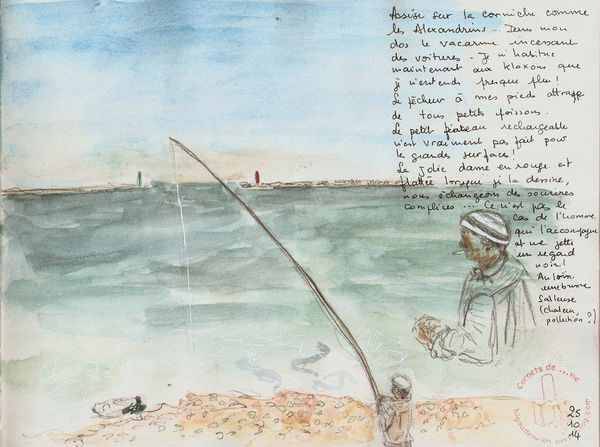 Assise sur la corniche comme
les Alexandrins... Dans mon
dos le vacarme incessant
des voitures. Je m'habitue
maintenant aux klaxons que
je n'entends presque plus!
Le pêcheur à mes pieds attrappe
de tous petits poissons.
Le petit pinceau rechargeable
n'est vraiment pas fait pour
les grandes surfaces!
La jolie dame en rouge est
flattée lorsque je la dessine,
nous échangeons des sourires
complices.... Ce n'est pas le
cas de l'homme
qui l'accompagne
et me jette
un regard
noir!
Au loin
une brume
(chaleur,
pollution?)
Carnets de ... vie
25
10
14